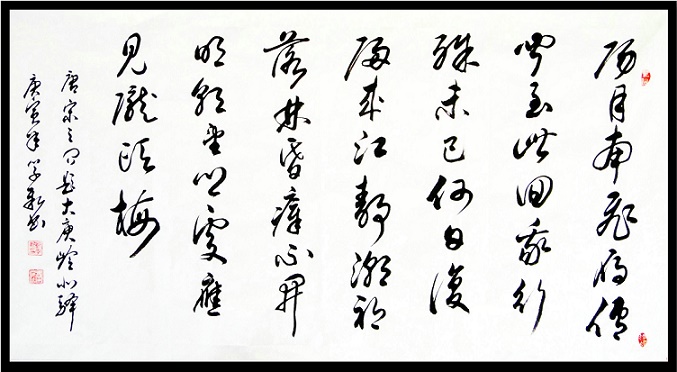 陽月南飛雁傳
聞至此回我行
殊未已何日復
歸來江靜潮初
落林昏瘴不開
明朝望鄉處應
見隴頭梅
唐宋之问題大庾嶺北驛
庚寅年學新書